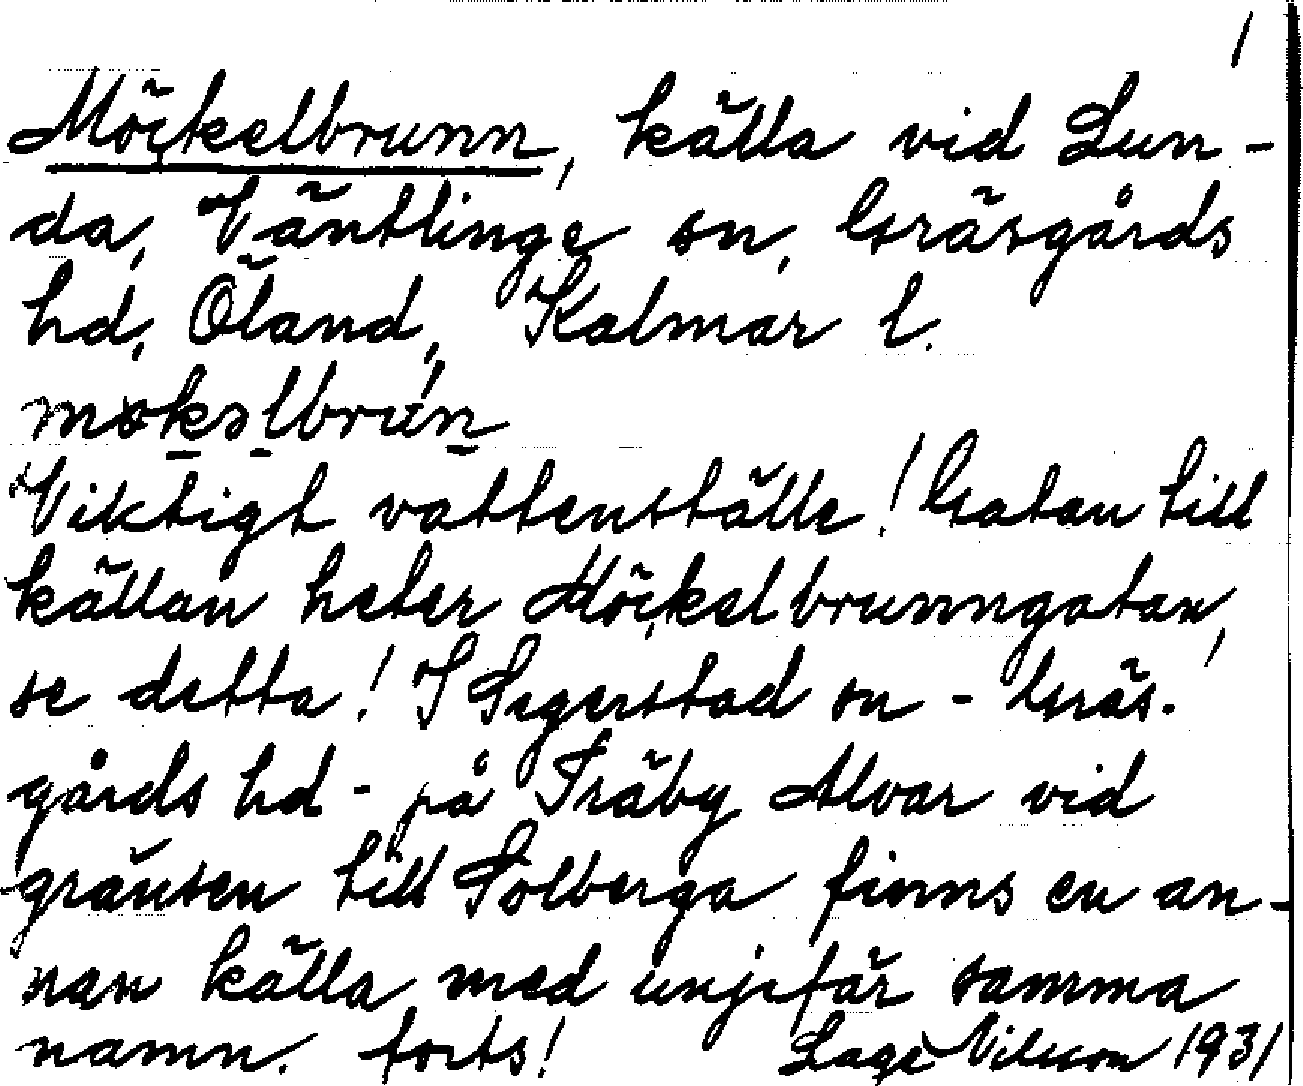 1
Möckelbrunn, källa vid Lun-
da, Ventlinge sn, Gräsgårds
hd, Öland, Kalmar l.
Viktigt vattenställe! Gatan till
källan heter Möckelbrunngatan,
se detta! I Segerstad sn - Gräs-
gårds hd - på Träby Alvar vid
gränsen till Solberga finns en an-
nan källa med unjefär samma
namn. forts! Lage Nilsson 1931